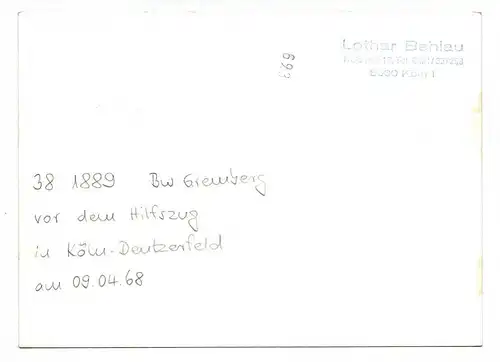 Lothar Behlau
5000 Köln 1
693
38 1889 Bw Gremberg
vor dem Hilfszug
in Köln-Deutzerfeld
am 09.04.68